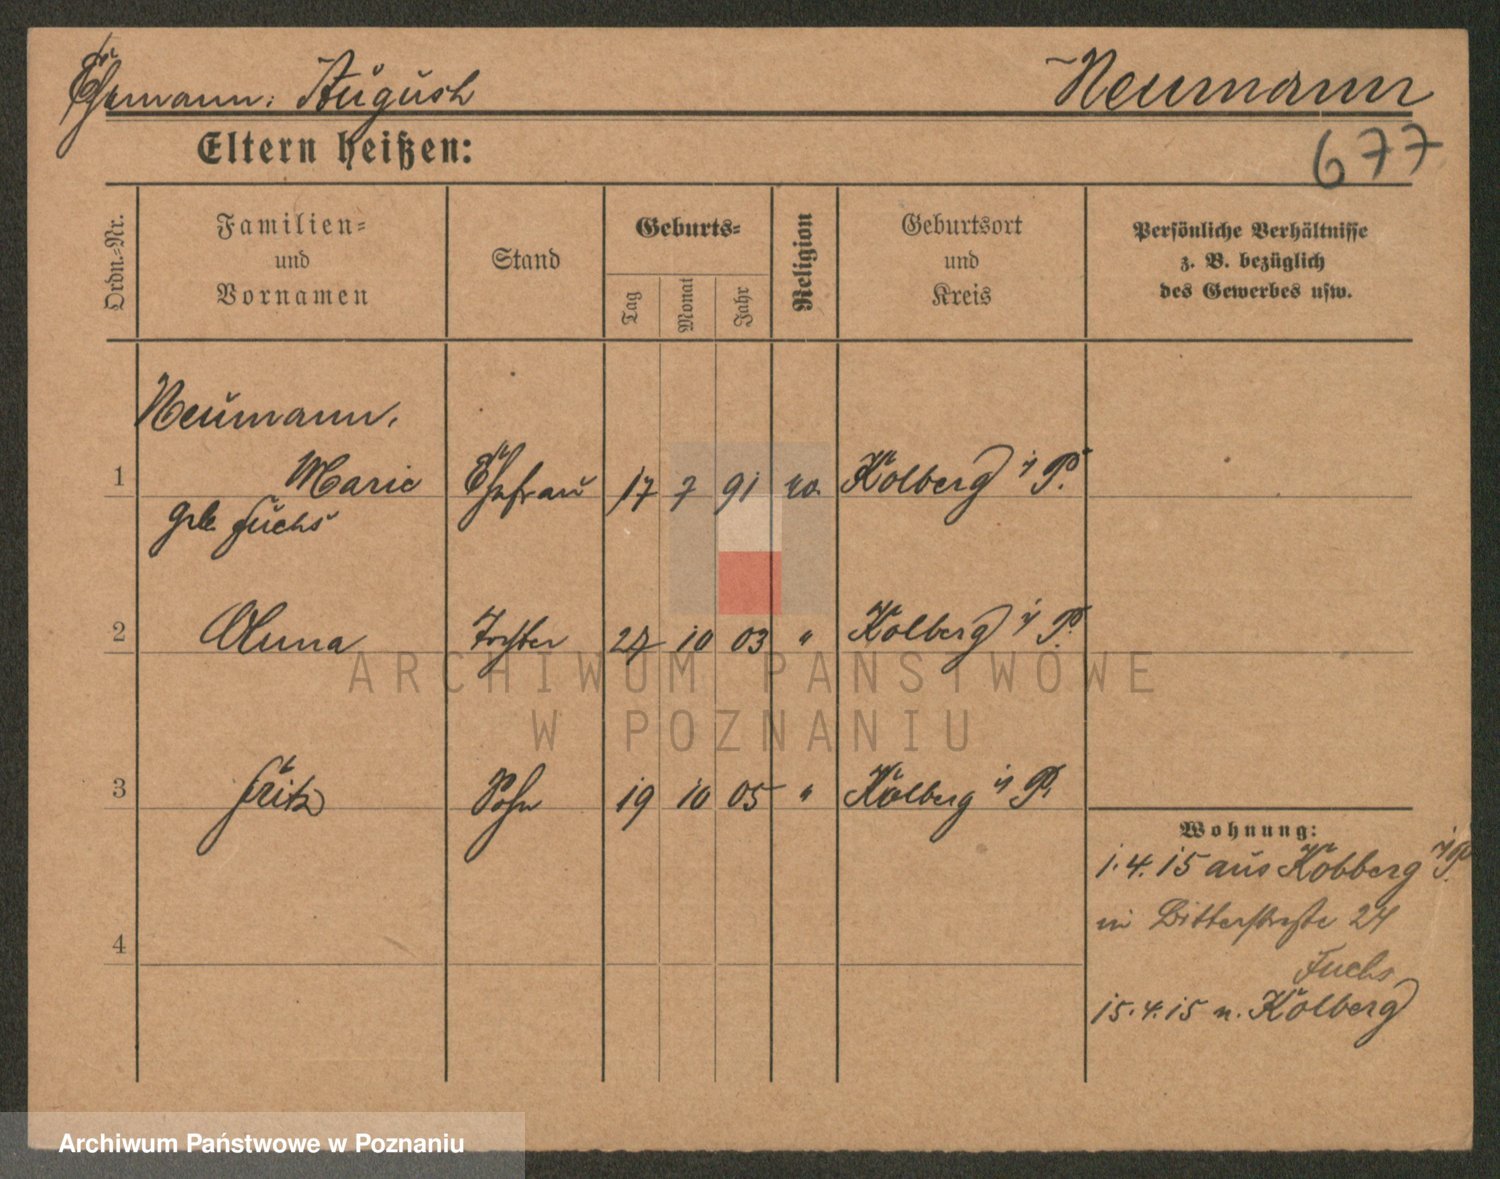 Ehemann: August
Neumann
Eltern heißen:
677
Ordn.-Nr.
Familien-
und
Vornamen
Stand
Geburts-
Tag
Monat
Jahr
Religion
Geburtsort
und
Kreis
Persönliche Verhältnisse
z. B. bezüglich
des Gewerbes usw.
Neumann,
1 Marie Ehefrau 17 7 91 ev. Kolberg i/P.
geb. Fuchs
2 Anna Tochter 27 10 03 " Kolberg i/P.
3 Fritz Sohn 19 10 05 " Kolberg i/P.
4
Wohnung:
1.4.15 aus Kolberg i/P.
in Bitterstraße 24
Fuchs,
15.4.15 n. Kolberg
ARCHIWUM PAŃSTWOWE
W POZNANIU
Archiwum Państwowe w Poznaniu